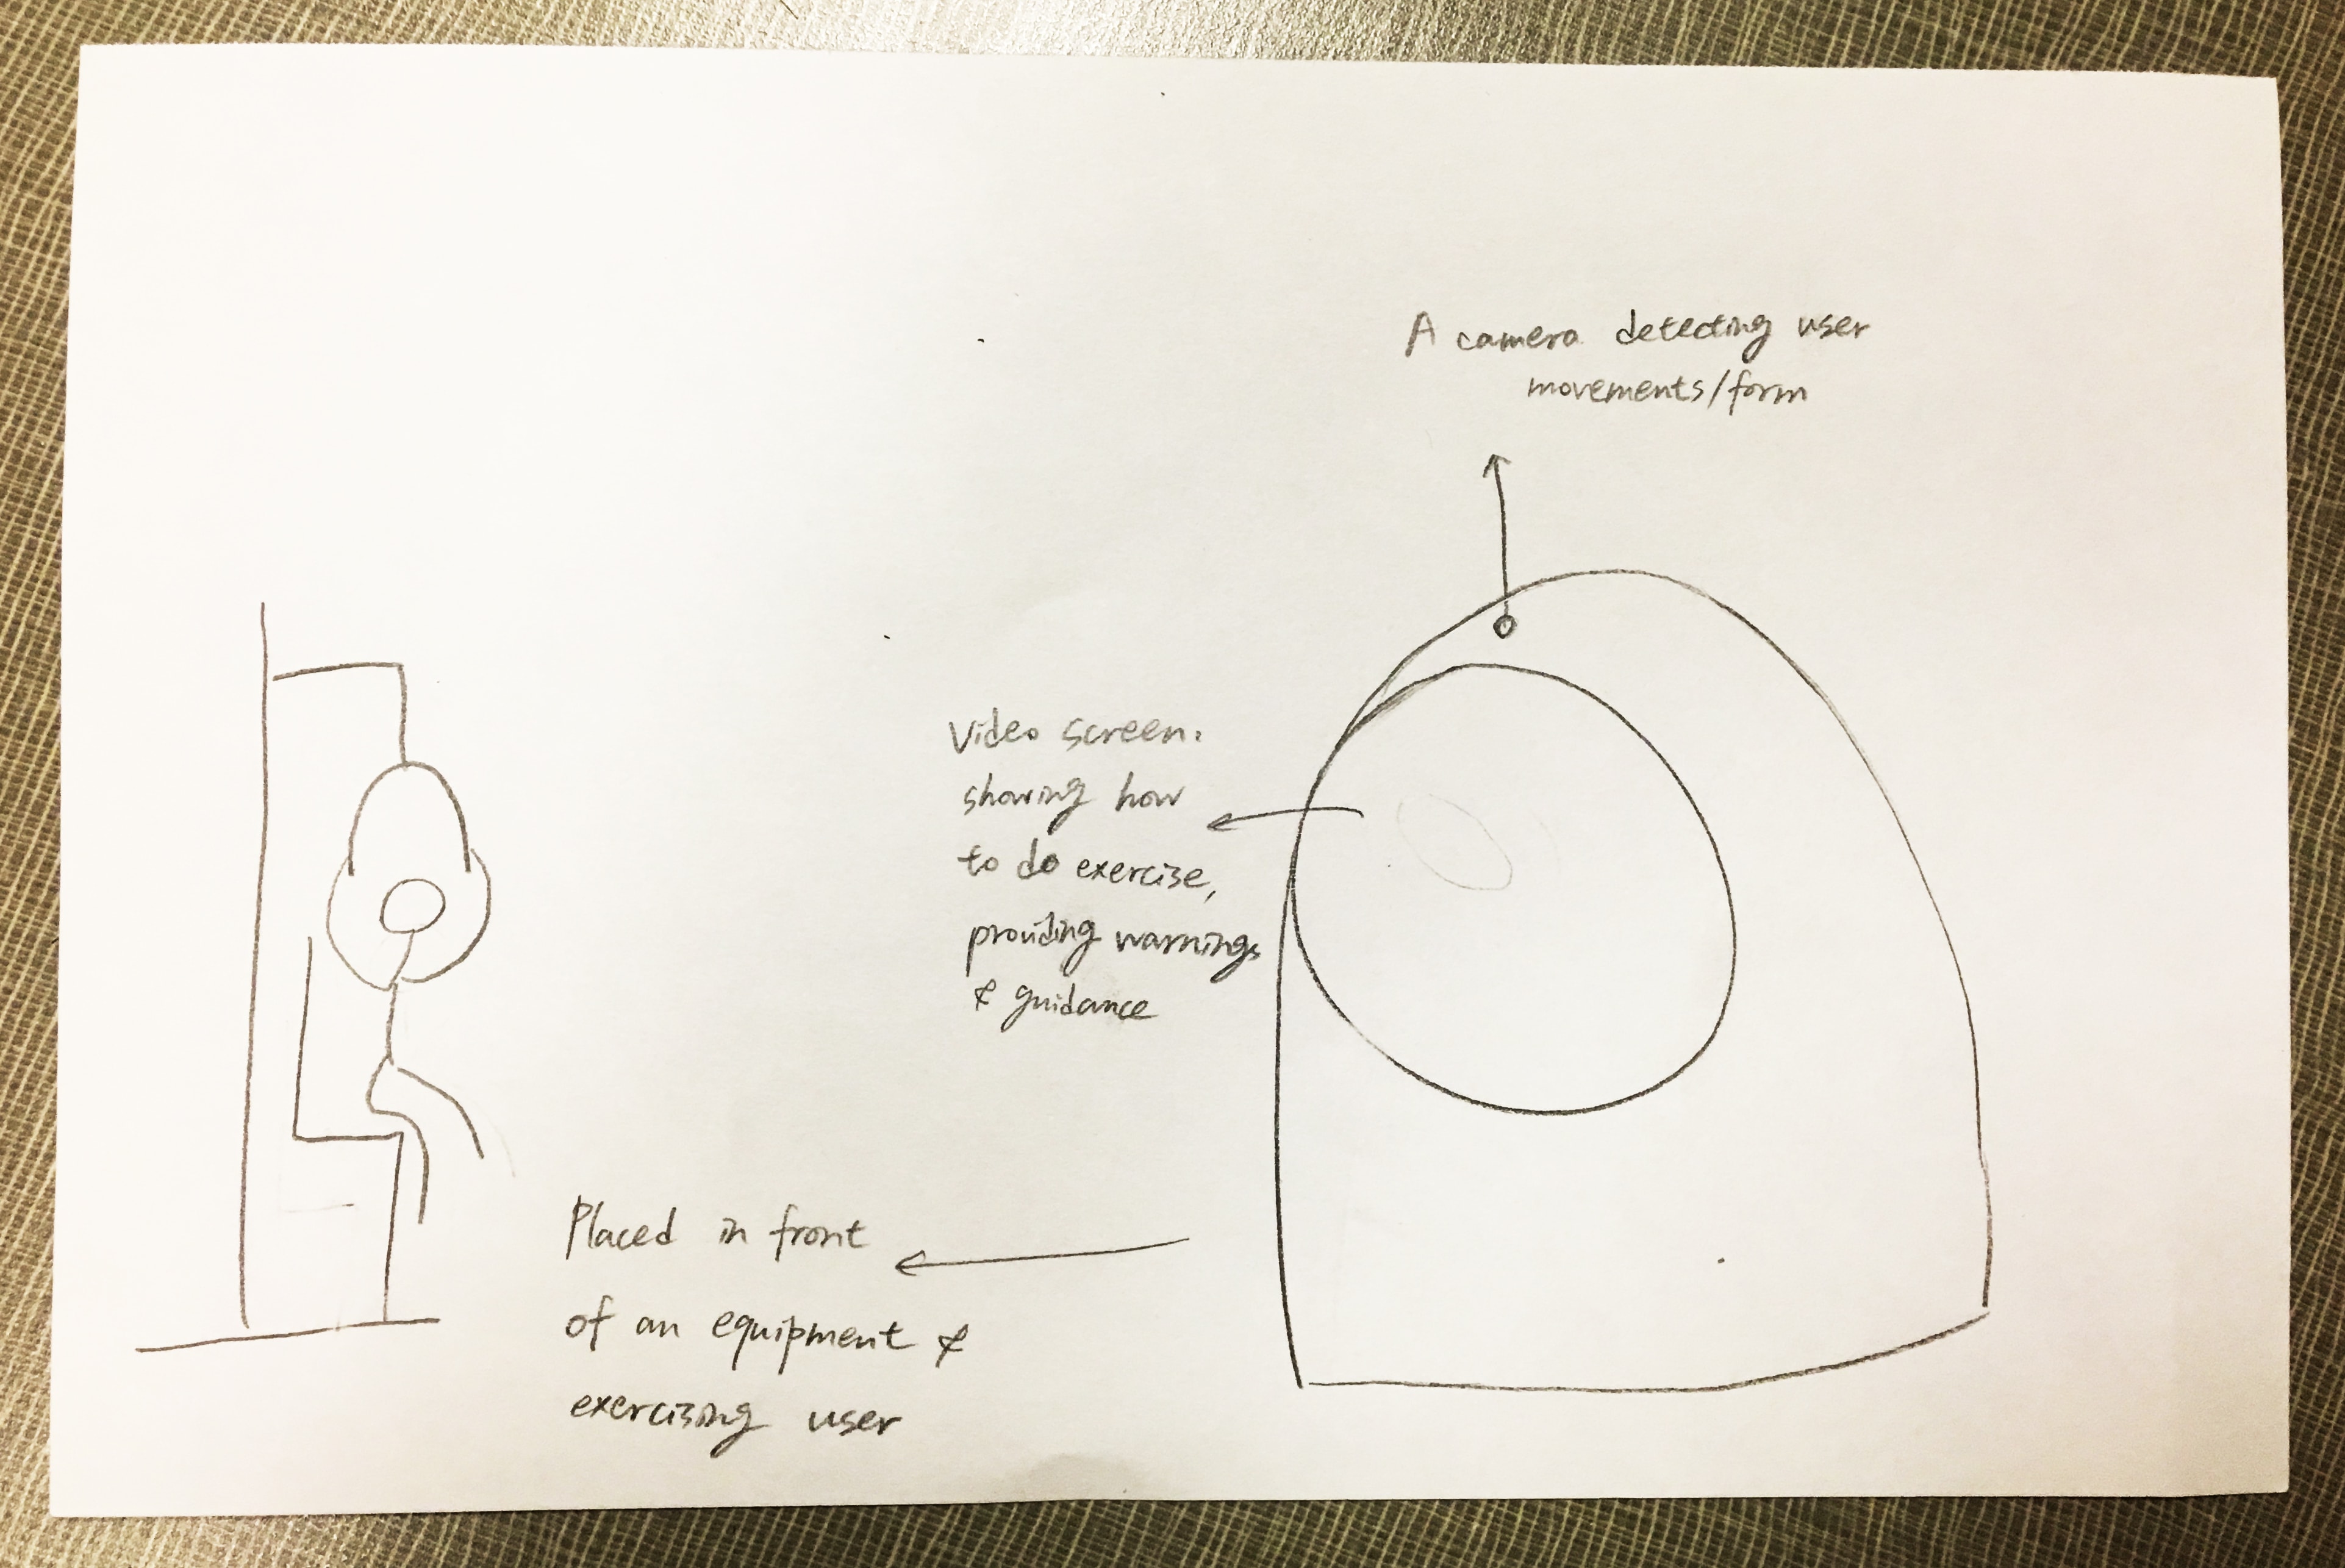 A camera detecting user
movements/form
Video screen.
sharing how
to do exercise,
providing warnings
& guidance
Placed in front
of an equipment &
exercising user